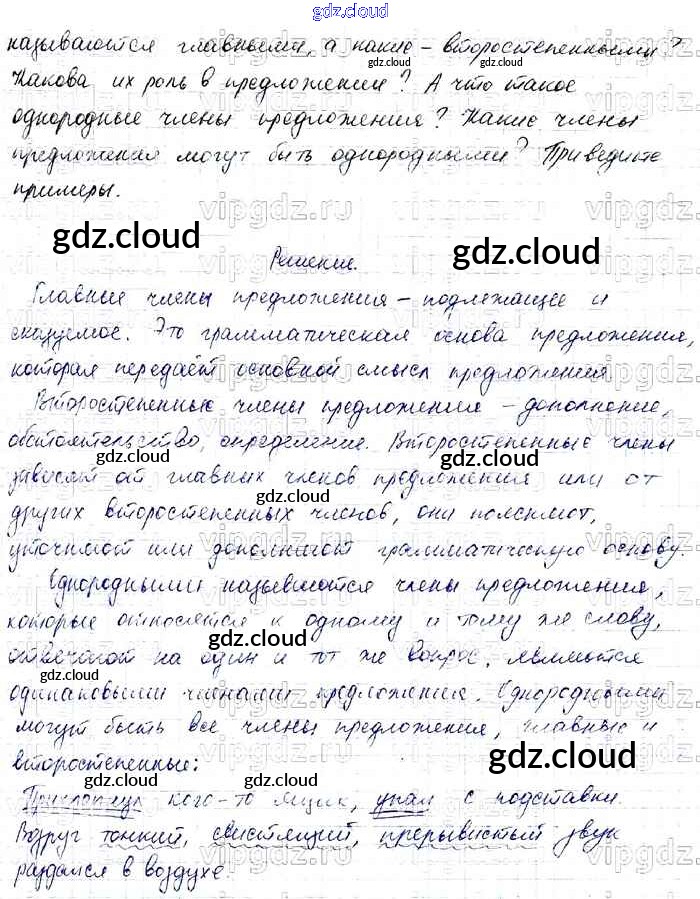 gdz.cloud
называются главными, а какие – второстепенными?
Какова их роль в предложении? А что такое
однородные члены предложения? Какие члены
предложения могут быть однородными? Приведите
примеры.
Решение.
Главные члены предложения – подлежащее и
сказуемое. Это грамматическая основа предложения,
которая передаёт основной смысл предложения
Второстепенные члены предложения – дополнение,
обстоятельство, определение. Второстепенные члены
зависят от главных членов предложения или от
других второстепенных членов, они поясняют,
уточняют или дополняют грамматическую основу.
Однородными называются члены предложения,
которые относятся к одному и тому же слову,
отвечают на один и тот же вопрос, являются
одинаковыми членами предложения. Однородными
могут быть все члены предложения, главные и
второстепенные:
кого-то ящик, упал с подставки.
Вдруг тонкий, свистящий, прерывистый звук
раздался в воздухе.